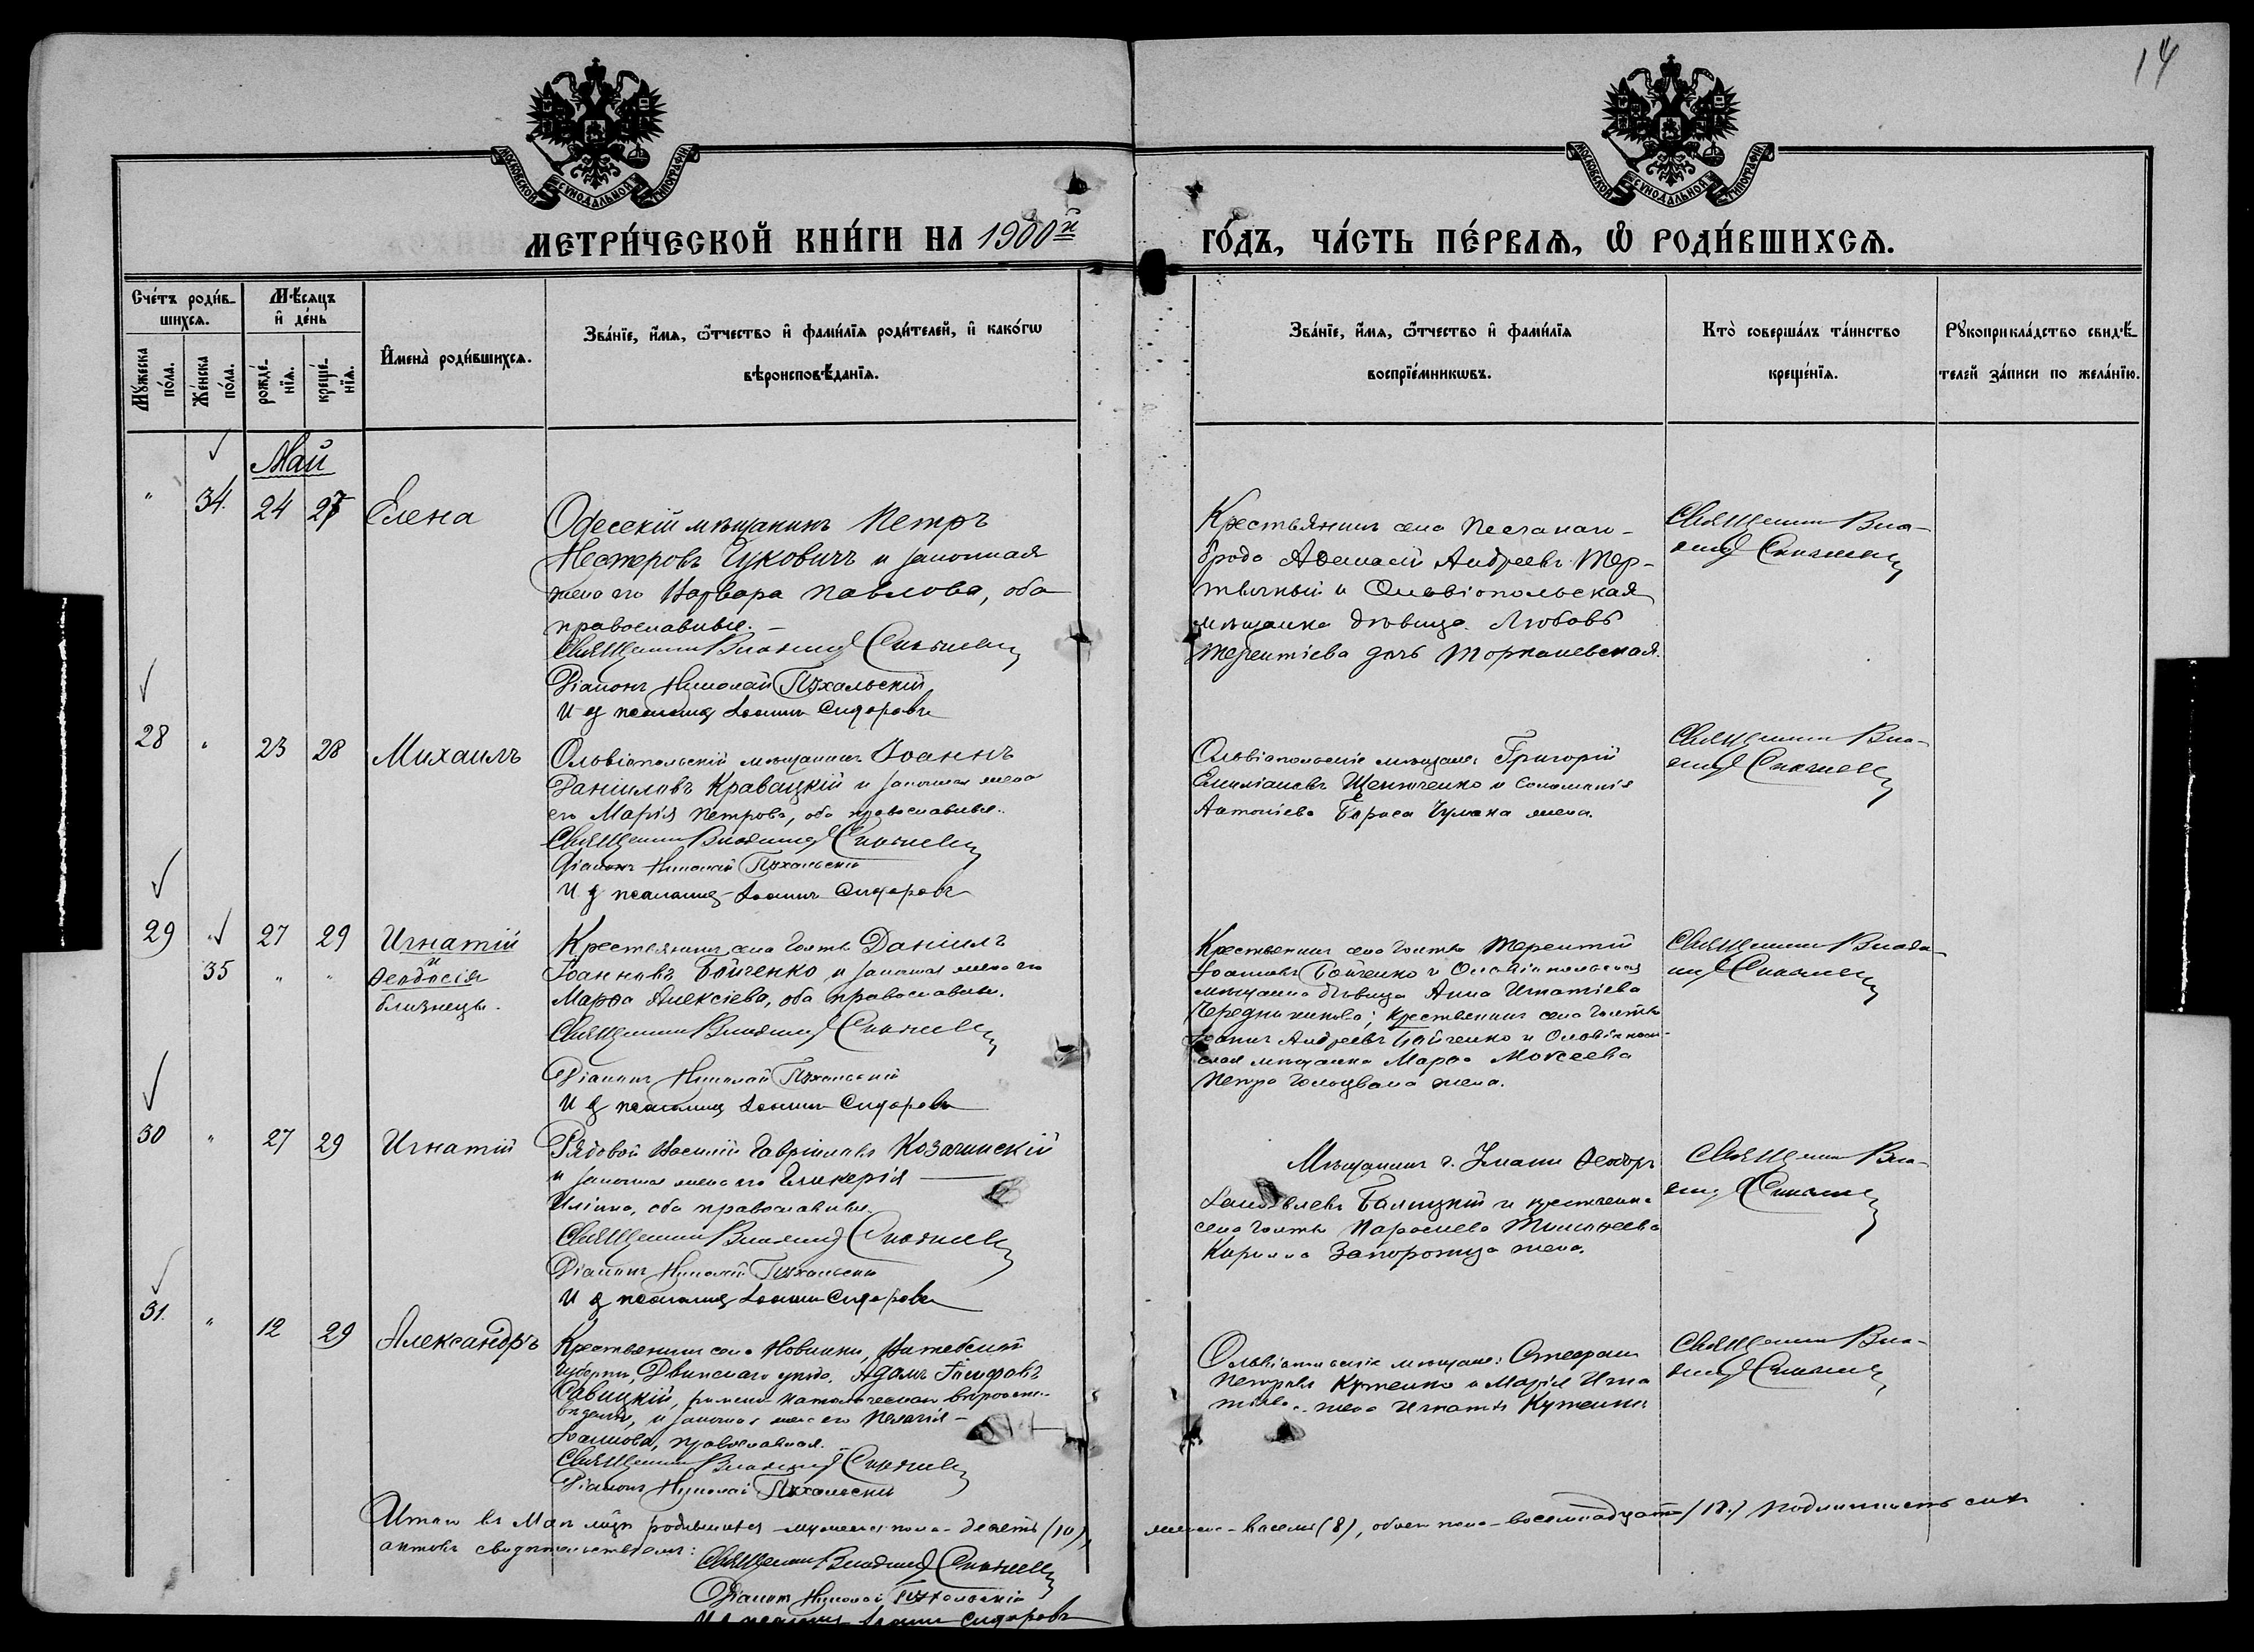 14
МОСКОВСКОЙ СѴНОДАЛЬНОЙ ТИПОГРАФІИ
МОСКОВСКОЙ СѴНОДАЛЬНОЙ ТИПОГРАФІИ
МЕТРИ́ЧЕСКОЙ КНИ́ГИ НА 1900й
ГО́ДЪ, ЧА́СТЬ ПЕ́РВАѦ, Ѡ҆ РОДИ́ВШИХСѦ.
Сче́тъ роди́в-
шихсѧ.
Мѣ́сѧцъ
и҆ де́нь
Мꙋ́жеска
по́ла.
Же́нска
по́ла.
рожде́-
нїѧ.
креще́-
нїѧ.
И҆мена̀ роди́вшихсѧ.
Зва́нїе, и҆́мѧ, ѻ҆́тчество и҆ фами́лїѧ роди́телей, и҆ како́гѡ
вѣроисповѣ́данїѧ.
Зва́нїе, и҆́мѧ, ѻ҆́тчество и҆ фами́лїѧ
воспрїе́мникѡвъ.
Кто̀ соверша́лъ та́инство
креще́нїѧ.
Рꙋкоприкла́дство свидѣ́-
телей за́писи по жела́нїю.
Май
" 34. 24 27 Елена
Одесскій мѣщанинъ Петръ
Нестеровъ Цуковичъ и законная
жена его Варвара Павлова, оба
православные.
Священникъ Владимір
Діаконъ Николай Пухальскій
И д псаломщ Іоаннъ Сидоровъ
Крестьянинъ села Песчанаго-
брода Аѳанасій Андреевъ Мер-
твичный и Ольвіопольская
мѣщанка дѣвица Любовь
Терентіева дочь Торкачевская.
Священникъ Вла-
димір
28 " 23 28 Михаилъ
Ольвіопольскій мѣщанинъ Іоаннъ
Даніиловъ Кравацкій и законная жена
его Марія Петрова, оба православные.
Священникъ Владимір
Діаконъ Николай Пухальскій
И д псаломщ Іоаннъ Сидоровъ
Ольвіопольскіе мѣщане: Григорій
Емиліановъ Щенюченко и Соломонія
Антоніева Бориса Чумака жена.
Священникъ Вла-
димір
29 " 27 29 Игнатій
и
35 " " Ѳеодосія
близнецы.
Крестьянинъ села Голты Даніилъ
Іоанновъ Бойченко и законная жена его
Марѳа Алексіева, оба православные.
Священникъ Владимір
Діаконъ Николай Пухальскій
И д псаломщ Іоаннъ Сидоровъ
Крестьянинъ села Голты Терентій
Іоанновъ Бойченко и Ольвіопольская
мѣщанка дѣвица Анна Игнатіева
Чередниченкова; крестьянинъ села Голты
Іоаннъ Андреевъ Бойченко и Ольвіополь-
ская мѣщанка Марѳа Моисеева
Петра Гольцвана жена.
Священникъ Влади-
мір
30 " 27 29 Игнатій
Рядовой Василій Гавріиловъ Козачинскій
и законная жена его Гликерія
Иліина, оба православные.
Священникъ Владимір
Діаконъ Николай Пухальскій
И д псаломщ Іоаннъ Сидоровъ
Мѣщанинъ г. Умани Ѳеодоръ
Іаковлевъ Балицкій и крестьянка
села Голты Параскева Тимоѳеева
Кирилла Запорожца жена.
Священникъ Вла-
димір
31. " 12 29 Александръ
Крестьянинъ села Новинки, Витебской
губерніи, Двинскаго уѣзда, Адамъ Іосифовъ
Савицкій, римско-католическаго вѣроиспо-
вѣданія, и законная жена его Пелагія
Іоаннова, православная.
Священникъ Владимір
Діаконъ Николай Пухальскій
Ольвіопольскіе мѣщане: Стефанъ
Петровъ Куженко и Марія Игна-
тіева жена Игнатія Куженко
Священникъ Вла-
димір
Итого въ Маѣ мѣсяцѣ родившихся мужеска пола - десять (10), женска - восемь (8), обоего пола - восемнадцать (18.) Подлинность сихъ
актовъ свидѣтельствуемъ:
Священникъ Владимір
Діаконъ Николай Пухальскій
И д псаломщ Іоаннъ Сидоровъ